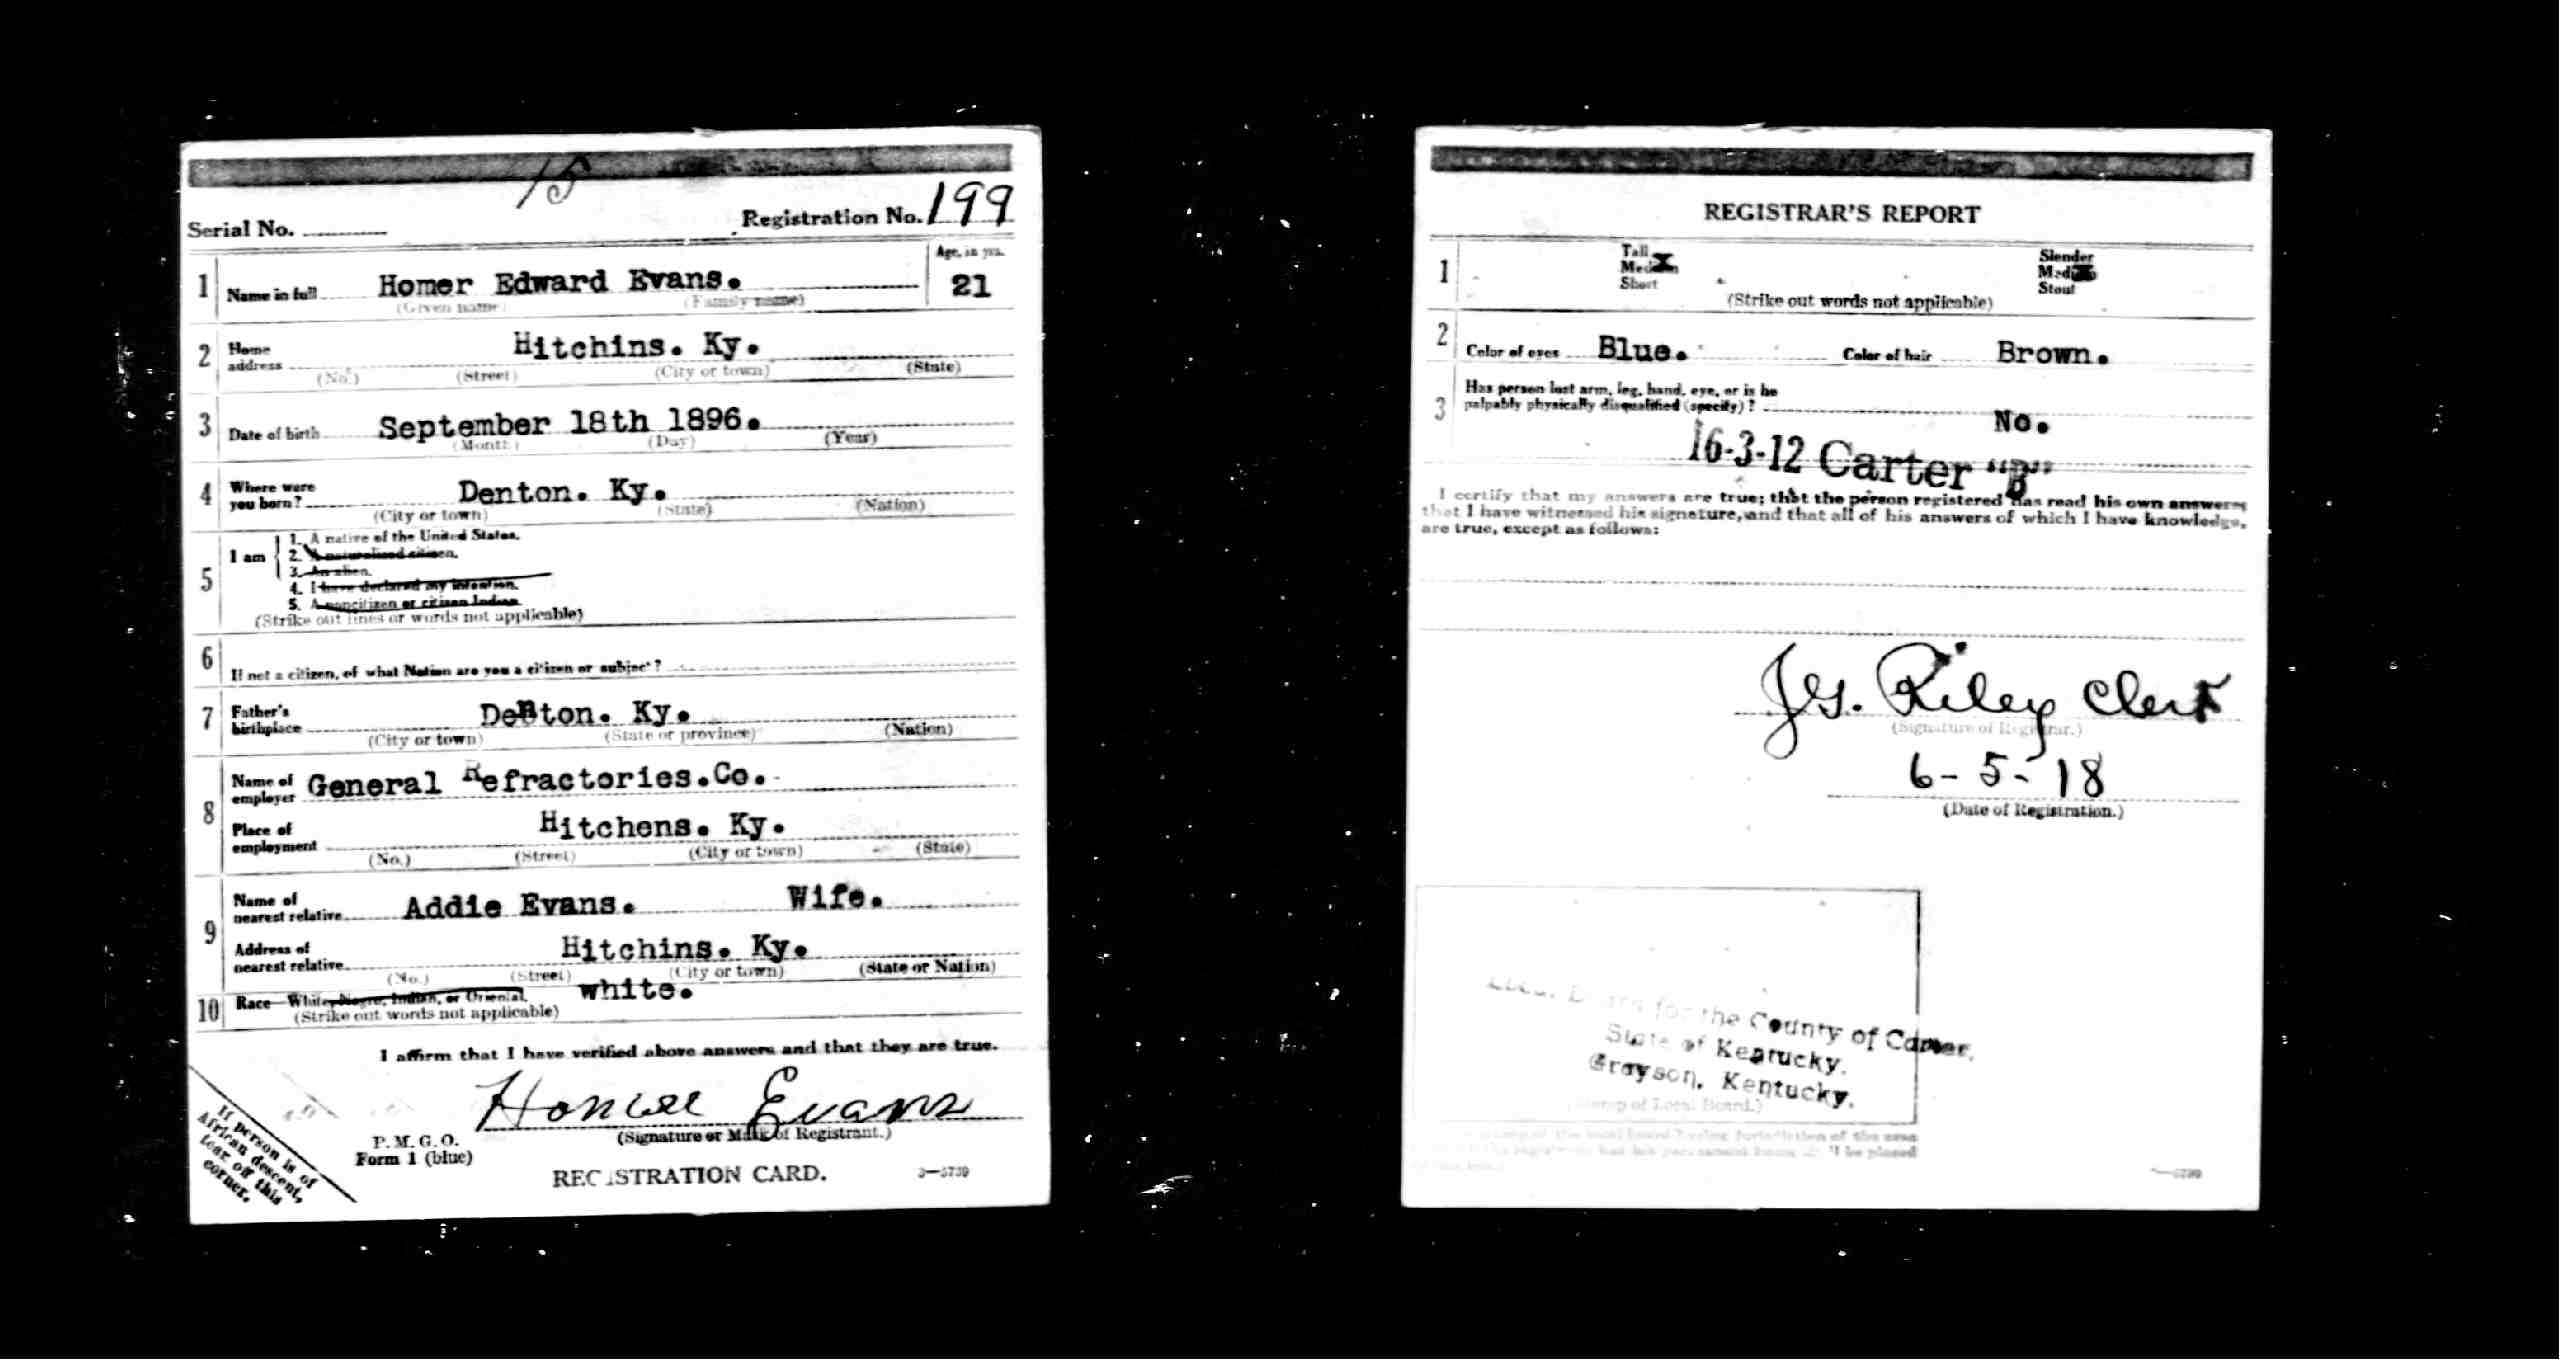 15
Serial No. Registration No. 199
1 Name in full Homer Edward Evans. Age, in yrs. 21
(Given name) (Family name)
2 Home address Hitchins. Ky.
(No.) (Street) (City or town) (State)
3 Date of birth September 18th 1896.
(Month) (Day) (Year)
4 Where were you born? Denton. Ky.
(City or town) (State) (Nation)
5 I am
1. A native of the United States.
2. A naturalized citizen.
3. An alien.
4. I have declared my intention.
5. A noncitizen or citizen Indian.
(Strike out lines or words not applicable)
6 If not a citizen, of what Nation are you a citizen or subject?
7 Father's birthplace Denton. Ky.
(City or town) (State or province) (Nation)
8 Name of employer General Refractories.Co.
Place of employment Hitchens. Ky.
(No.) (Street) (City or town) (State)
9 Name of nearest relative Addie Evans. Wife.
Address of nearest relative Hitchins. Ky.
(No.) (Street) (City or town) (State or Nation)
10 Race—White, Negro, Indian, or Oriental. white.
(Strike out words not applicable)
I affirm that I have verified above answers and that they are true.
Homer Evans
(Signature or Mark of Registrant.)
P. M. G. O.
Form 1 (blue)
REGISTRATION CARD. 3—5739
If person is of
African descent,
tear off this
corner.
REGISTRAR'S REPORT
1 Tall Slender
Medium Medium
Short Stout
(Strike out words not applicable)
2 Color of eyes Blue. Color of hair Brown.
3 Has person lost arm, leg, hand, eye, or is he
palpably physically disqualified (specify)? No.
16-3-12 Carter "B"
I certify that my answers are true; that the person registered has read his own answers
that I have witnessed his signature, and that all of his answers of which I have knowledge,
are true, except as follows:
Riley Clerk
(Signature of Registrar.)
6-5-18
(Date of Registration.)
Local Board for the County of Carter,
State of Kentucky.
Grayson, Kentucky.
(Stamp of Local Board.)